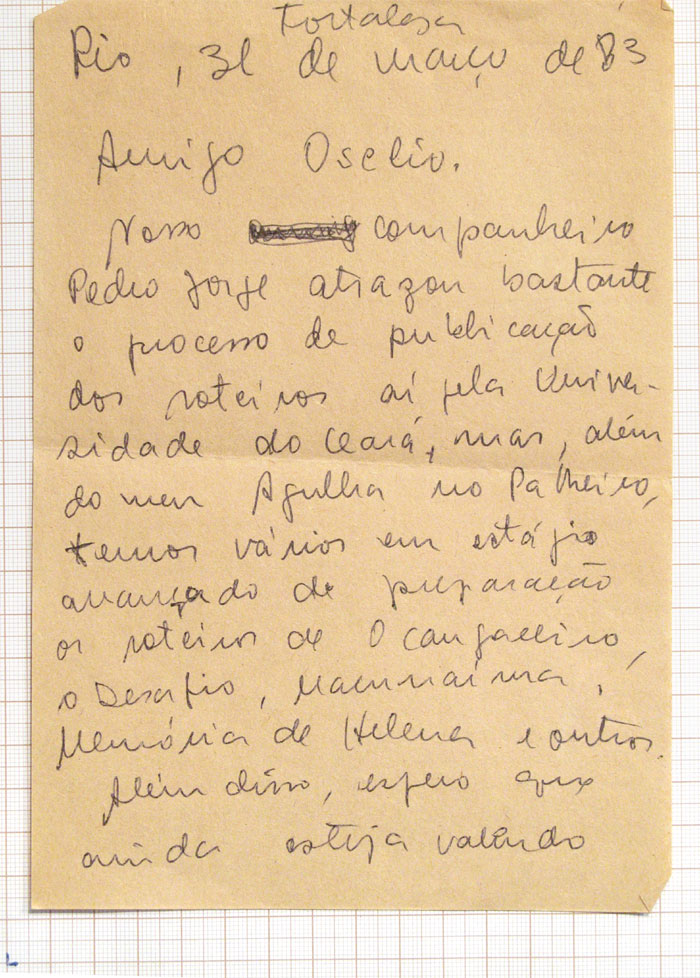 Fortaleza
Rio, 31 de março de 83
Amigo Oselio.
Nosso companheiro
Pedro Jorge atrazou bastante
o processo de publicação
dos roteiros aí pela Univer-
sidade do Ceará, mas, além
do meu Agulha no Palheiro,
temos vários em estágio
avançado de preparação
os roteiros de O Cangaceiro,
o Desafio, Macunaíma,
Memória de Helena e outros.
Além disso, espero que
ainda esteja valendo